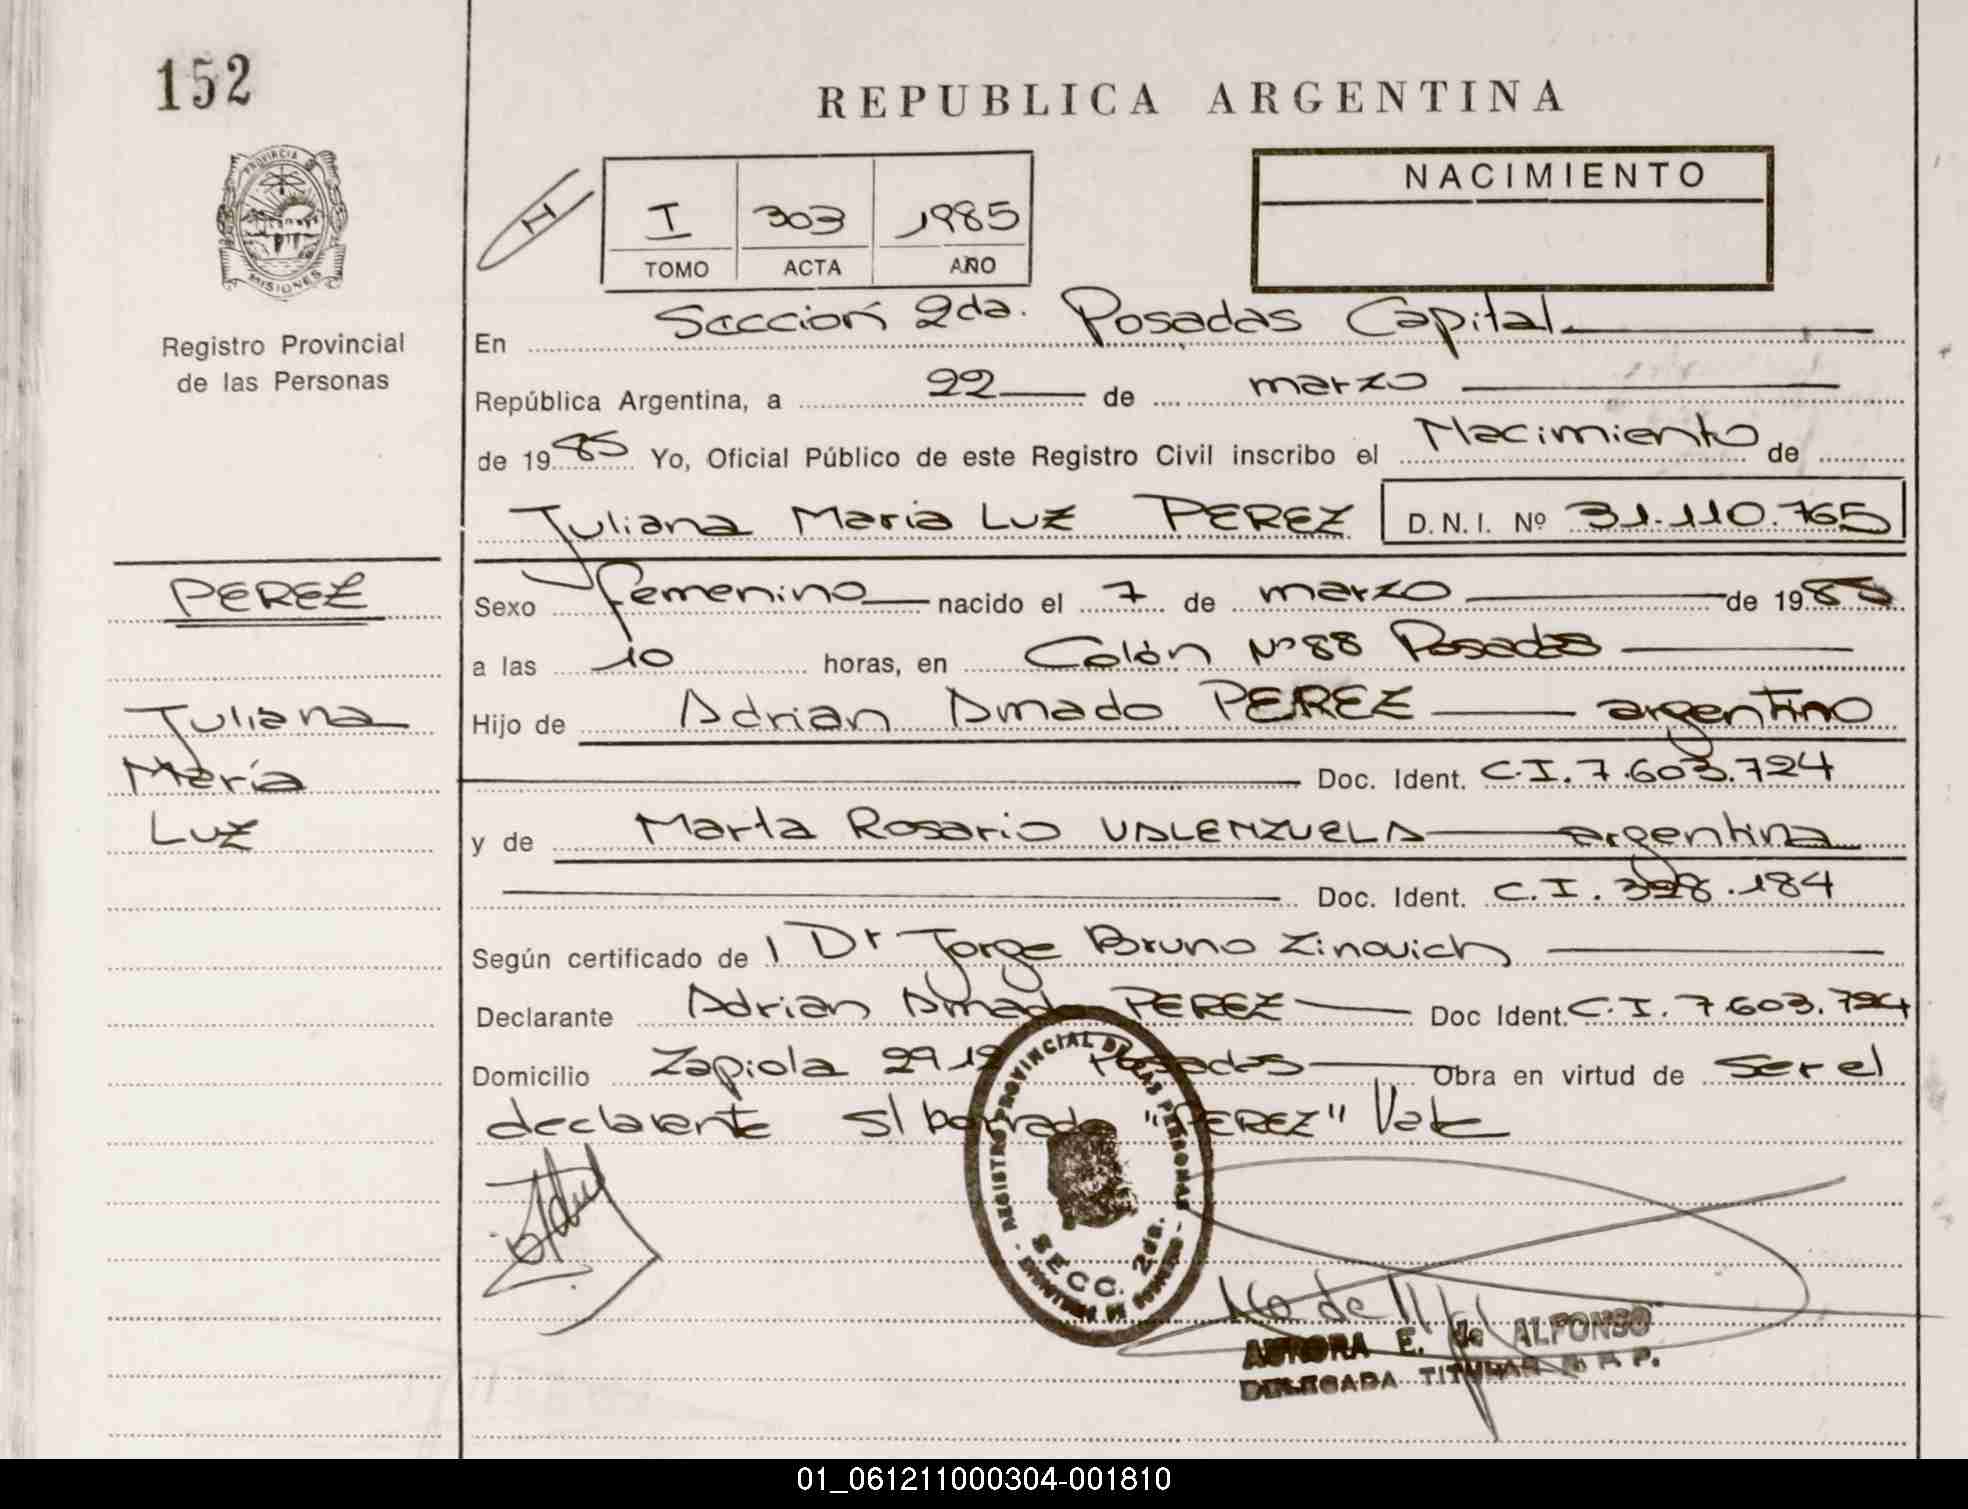 152
REPUBLICA ARGENTINA
PROVINCIA DE
MISIONES
Registro Provincial
de las Personas
I 303 1985
TOMO ACTA AÑO
NACIMIENTO
En Sección 2da. Posadas Capital
República Argentina, a 22 de marzo
de 1985 Yo, Oficial Público de este Registro Civil inscribo el Nacimiento de
Juliana Maria Luz PEREZ D.N.I. Nº 31.110.765
PEREZ
Juliana
María
Luz
Sexo femenino nacido el 7 de marzo de 1985
a las 10 horas, en Colón Nº 88 Posadas
Hijo de Adrian Amado PEREZ argentino
Doc. Ident. C.I. 7.603.724
y de Marta Rosario VALENZUELA argentina
Doc. Ident. C.I. .184
Según certificado de Dr Jorge Bruno Zinovich
Declarante Adrian Amado PEREZ Doc Ident. C.I. 7.603.724
Domicilio Zapiola 2912 Posadas Obra en virtud de ser el
declarante s/ borrado "PEREZ" Vale
REGISTRO PROVINCIAL DE LAS PERSONAS
SECC. 2da.
AURORA E. de ALFONSO
DELEGADA TITULAR R. P. P.
01_061211000304-001810